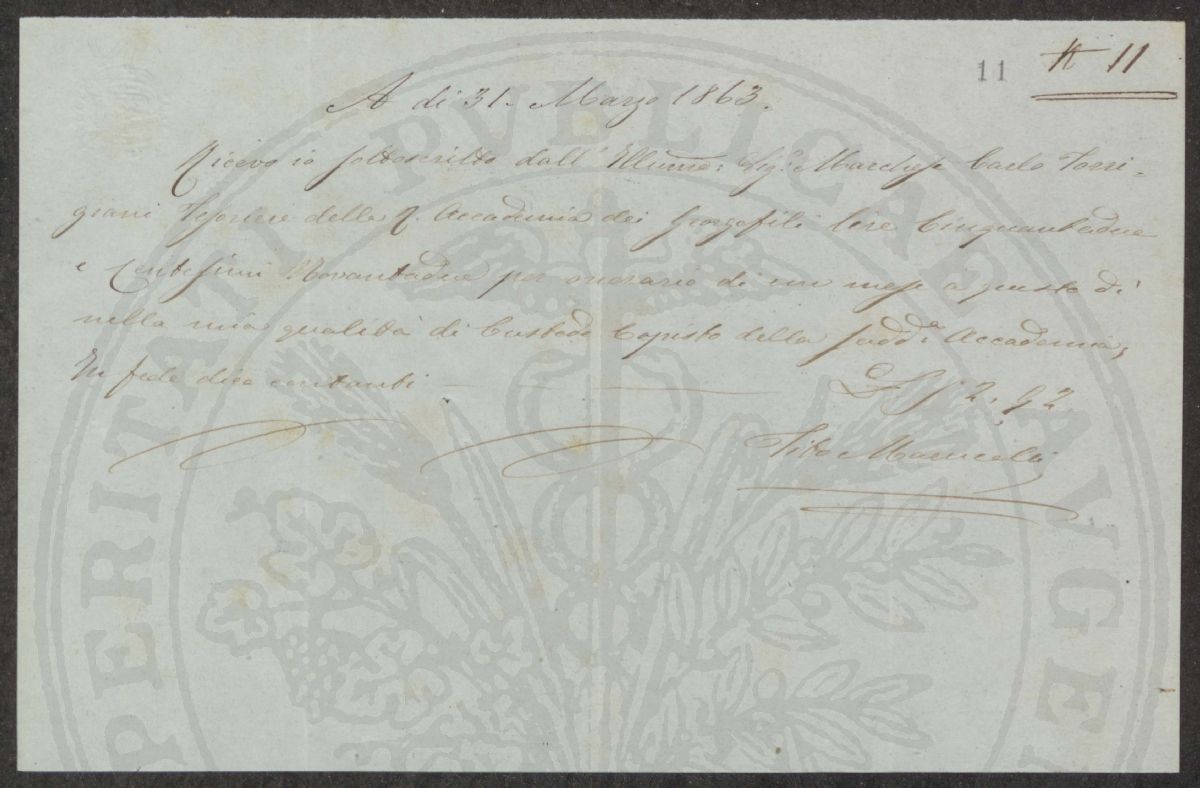 11 # 11
A dì 31. Marzo 1863.
Ricevo io sottoscritto dall' Illumo: Sigr. Marchese Carlo Torri-
giani Tesoriere della R. Accademia dei Georgofili lire Cinquantadue
e Centesimi Novantadue per onorario di un mese a questo dì
nella mia qualità di Custode Copista della sudda Accademia;
In fede dico contanti £ 52, 92
Tito Marucelli
PROSPERITATI PVBLICAE AVGENDAE